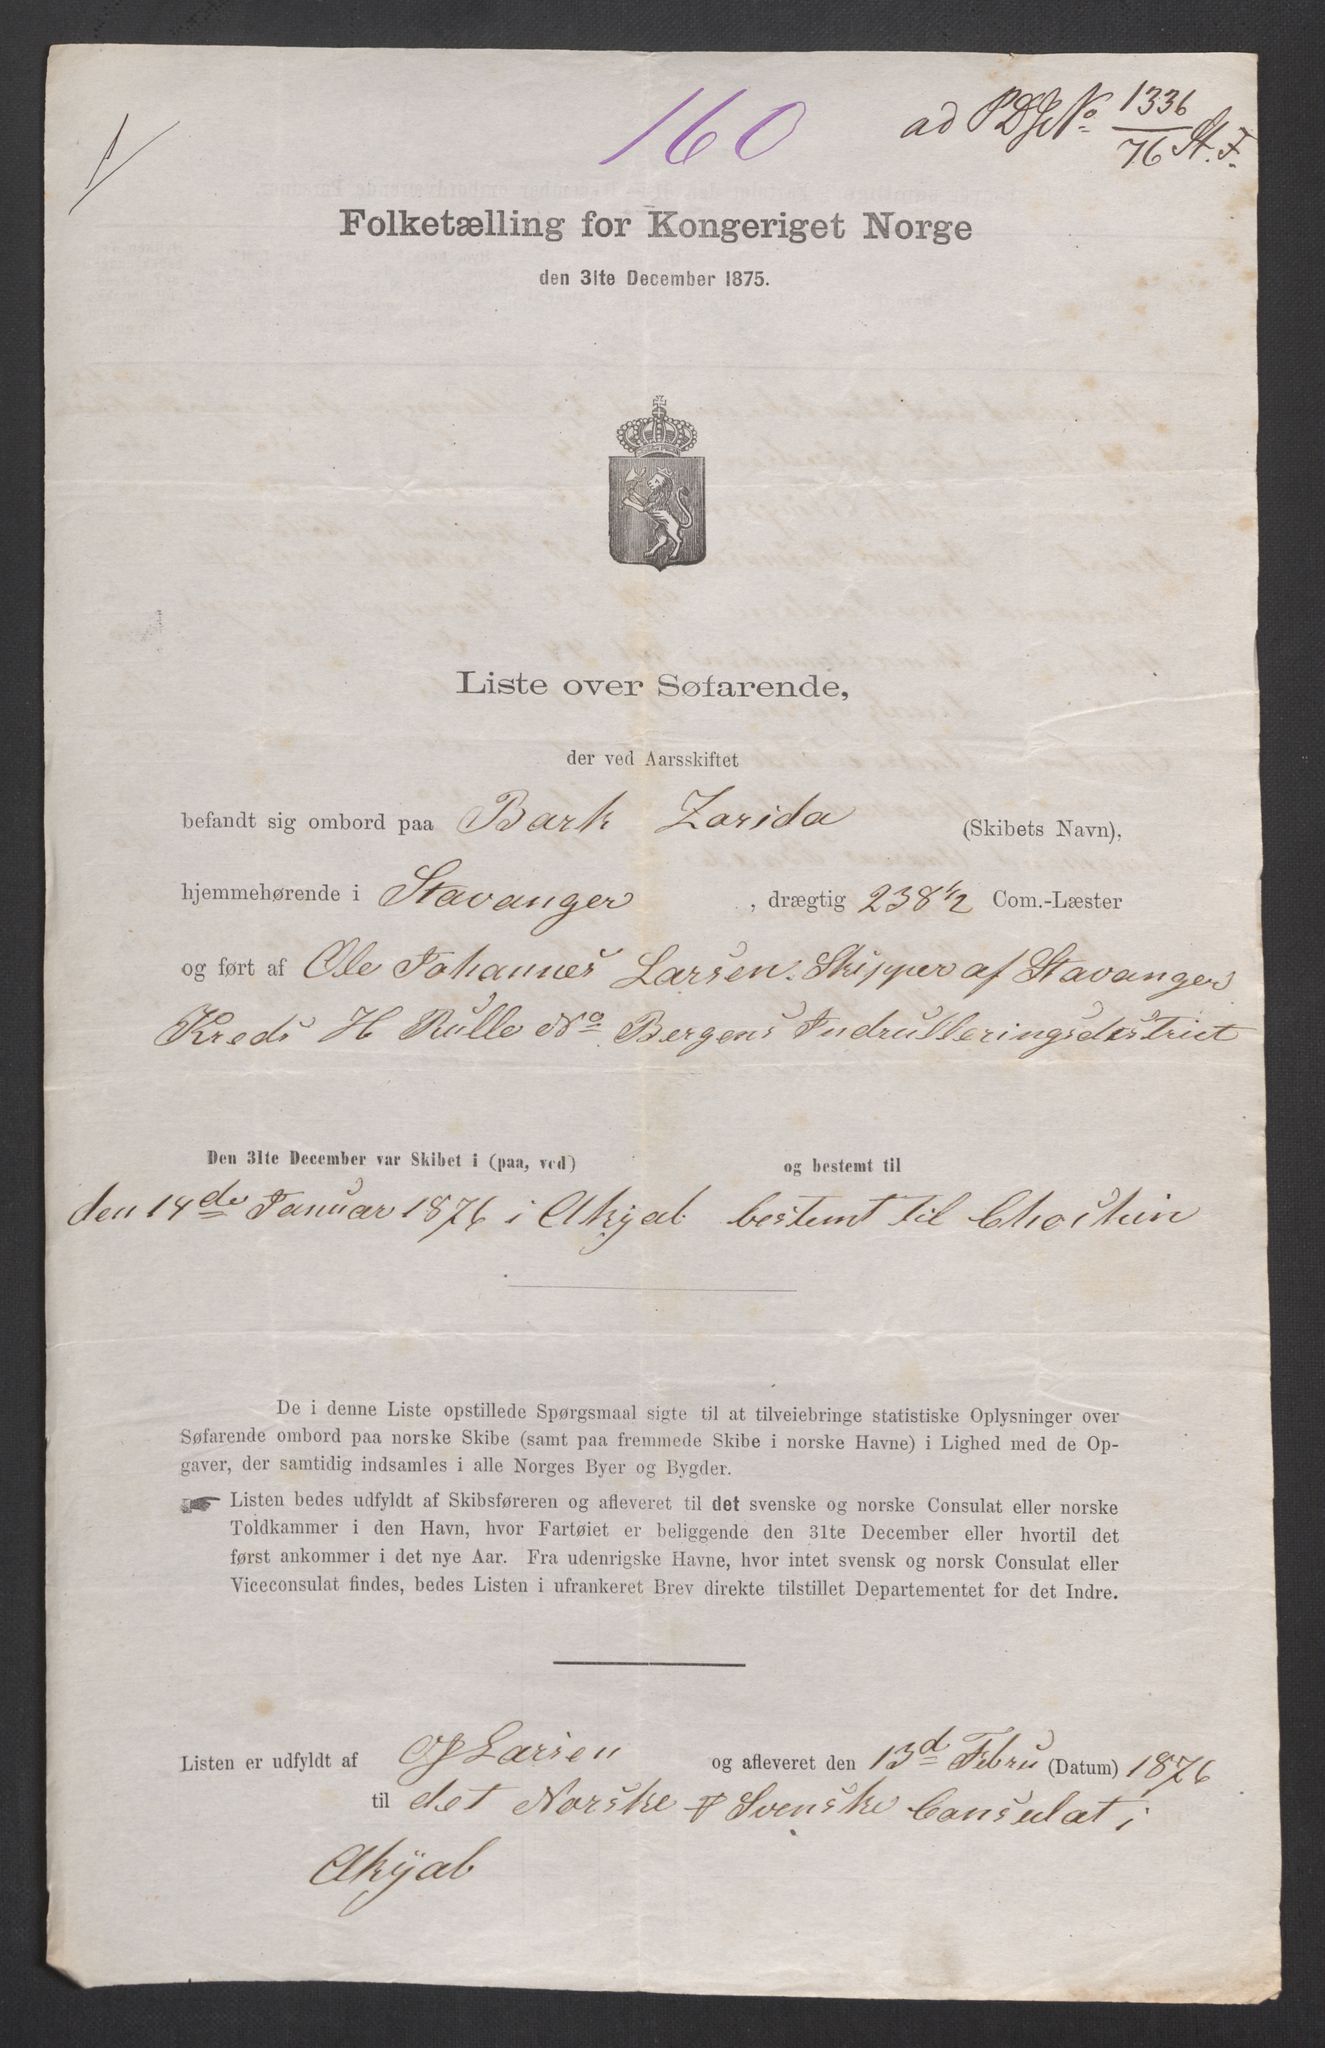 160
ad PDJ No 1336/76 St. F.
Folketælling for Kongeriget Norge
den 31te December 1875.
Liste over Søfarende,
der ved Aarsskiftet
befandt sig ombord paa Bark Zarida (Skibets Navn),
hjemmehørende i Stavanger, drægtig 238 1/2 Com.-Læster
og ført af Ole Johannes Larsen. Skipper af Stavanger
Kreds H Rulle No Bergens Indrulleringsdistrict
Den 31te December var Skibet i (paa, ved) og bestemt til
den 14de Januar 1876 i Akyab bestemt til
De i denne Liste opstillede Spørgsmaal sigte til at tilveiebringe statistiske Oplysninger over
Søfarende ombord paa norske Skibe (samt paa fremmede Skibe i norske Havne) i Lighed med de Op-
gaver, der samtidig indsamles i alle Norges Byer og Bygder.
☛ Listen bedes udfyldt af Skibsføreren og afleveret til det svenske og norske Consulat eller norske
Toldkammer i den Havn, hvor Fartøiet er beliggende den 31te December eller hvortil det
først ankommer i det nye Aar. Fra udenrigske Havne, hvor intet svensk og norsk Consulat eller
Viceconsulat findes, bedes Listen i ufrankeret Brev direkte tilstillet Departementet for det Indre.
Listen er udfyldt af OJ Larsen og afleveret den 13d Febru (Datum) 1876
til det Norske & Svenske Consulat i
Akÿab